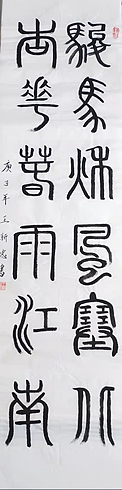 駿馬秋風塞北
杏花春雨江南
庚子年王新書